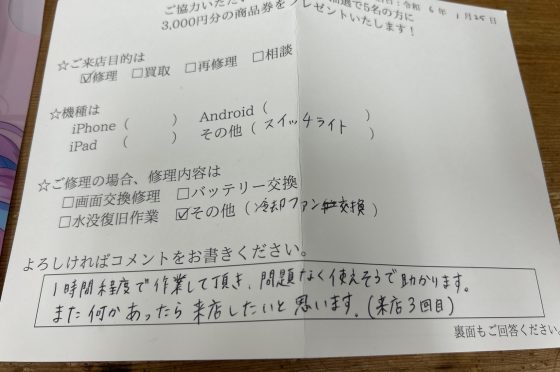 ご協力いただい 抽選で5名の方に
3,000円分の商品券をプレゼントいたします！
日：令和 6 年 1月25日
☆ご来店目的は
☑修理 □買取 □再修理 □相談
☆機種は
iPhone（ ） Android（ ）
iPad （ ） その他（スイッチライト ）
☆ご修理の場合、修理内容は
□画面交換修理 □バッテリー交換
□水没復旧作業 ☑その他（冷却ファン交換）
よろしければコメントをお書きください。
1時間程度で作業して頂き、問題なく使えそうで助かります。
また何かあったら来店したいと思います。(来店3回目)
裏面もご回答ください。